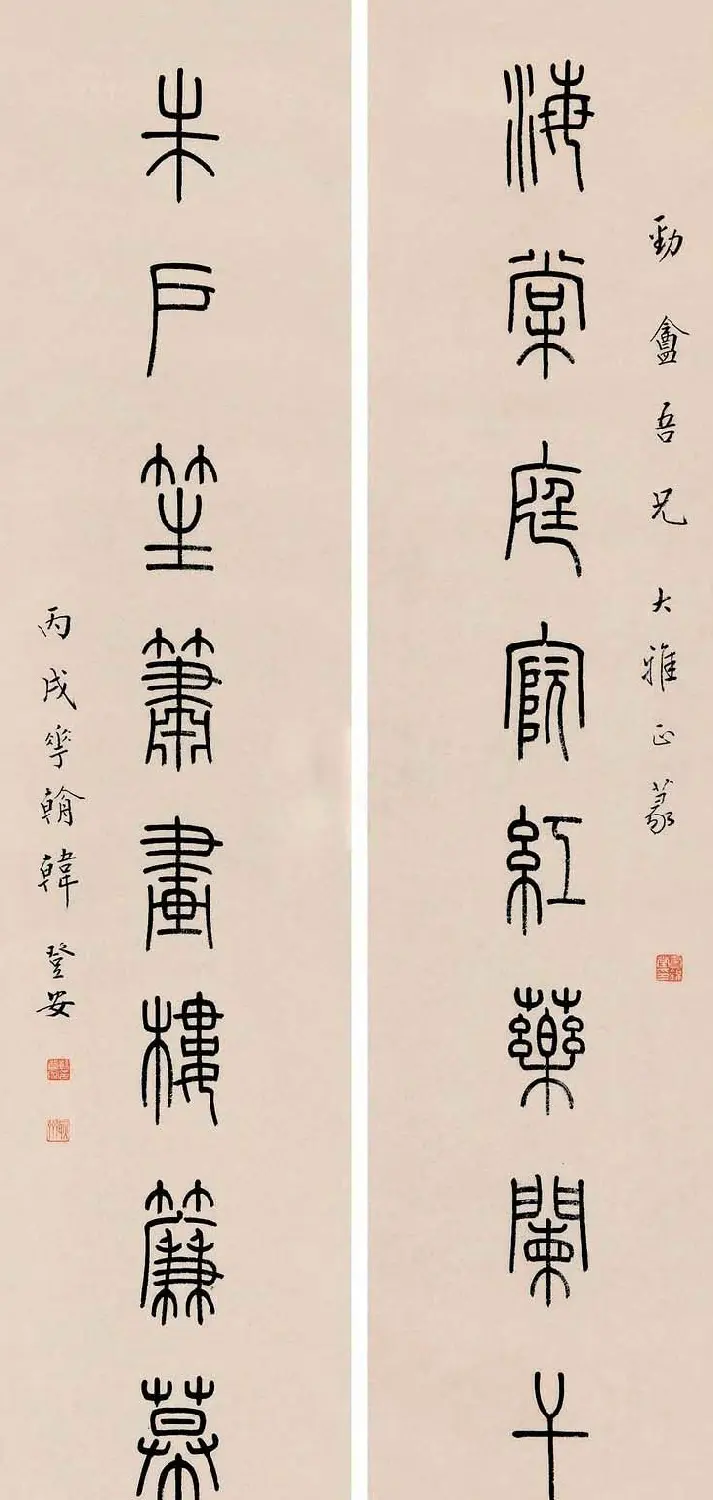 勁盦吾兄大雅正篆
海棠庭院紅藥闌干
朱戶笙簫畫樓簾幕
丙戌華翰韓登安